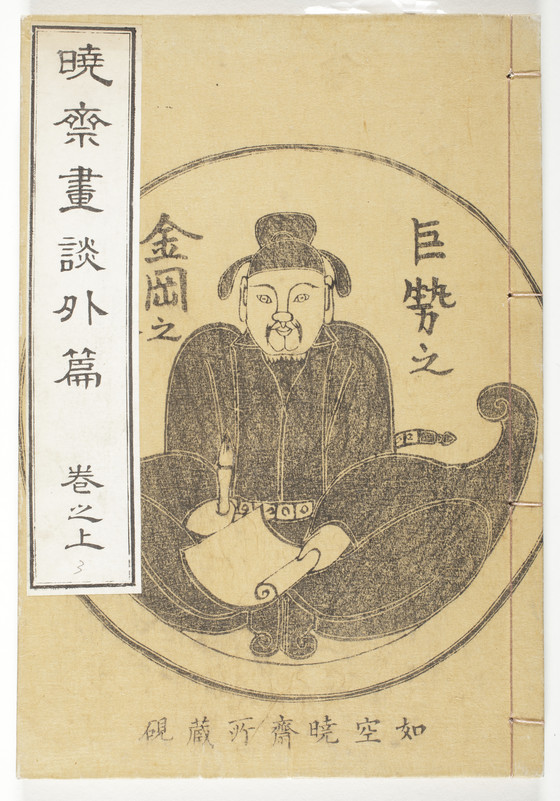 曉斎畫談外篇 卷之上
3
巨勢之
金岡之
如空曉齋所蔵硯